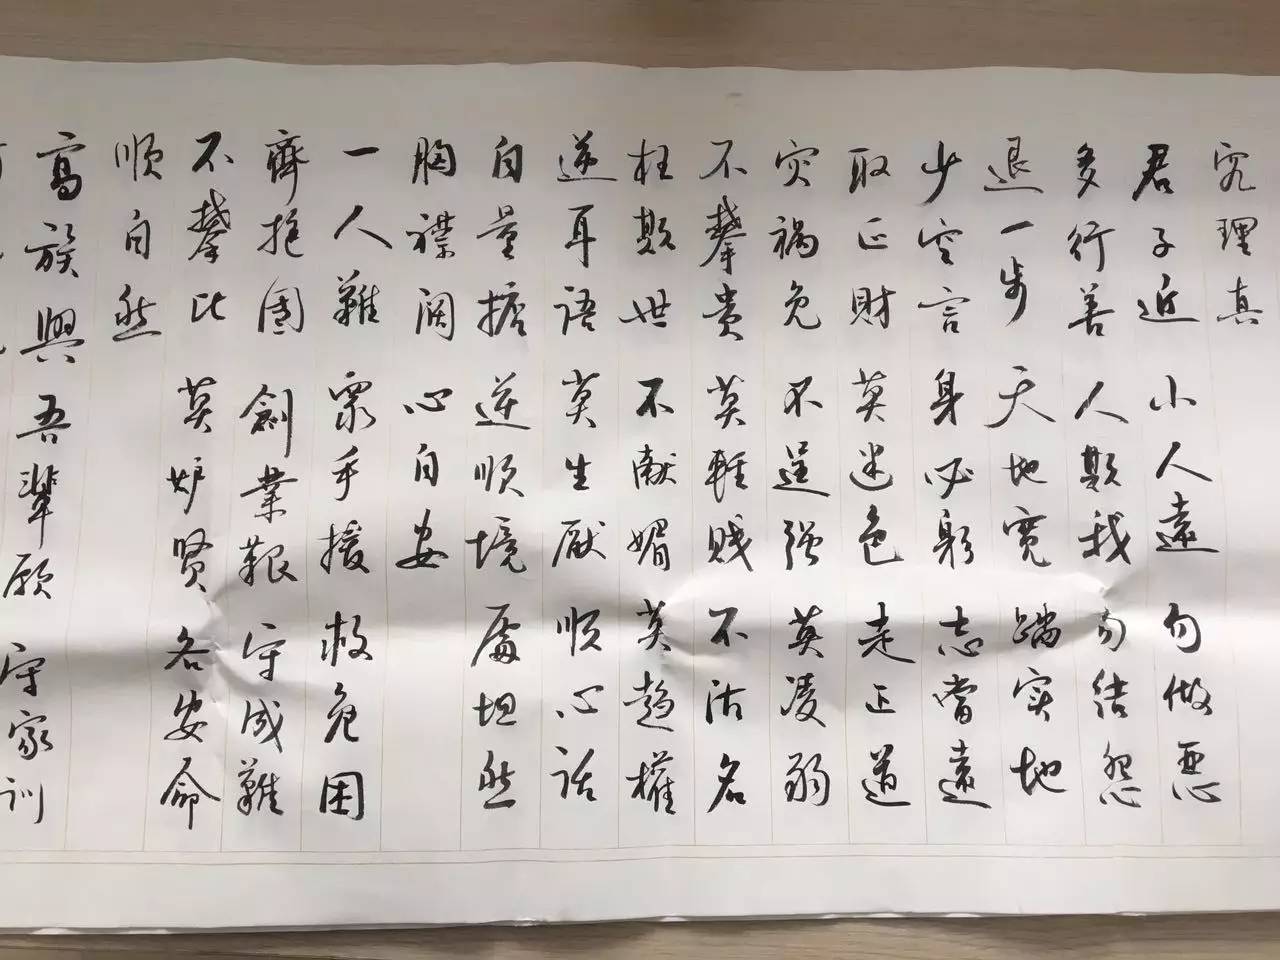 究理真
君子近 小人遠 勿做惡
多行善 人欺我 勿结怨
退一步 天地宽 踏实地
少空言 身必躬 志當遠
取正财 莫迷色 走正道
灾祸免 不逞强 莫凌弱
不攀贵 莫輕贱 不沽名
枉欺世 不献媚 莫趋權
逆耳语 莫生厭 顺心话
自量擔 逆顺境 處坦然
胸襟阔 心自安
一人難 眾手援 救危困
齊抱團 創業艱 守成難
不攀比 莫妒贤 各安命
顺自然
高族興 吾輩願 守家训